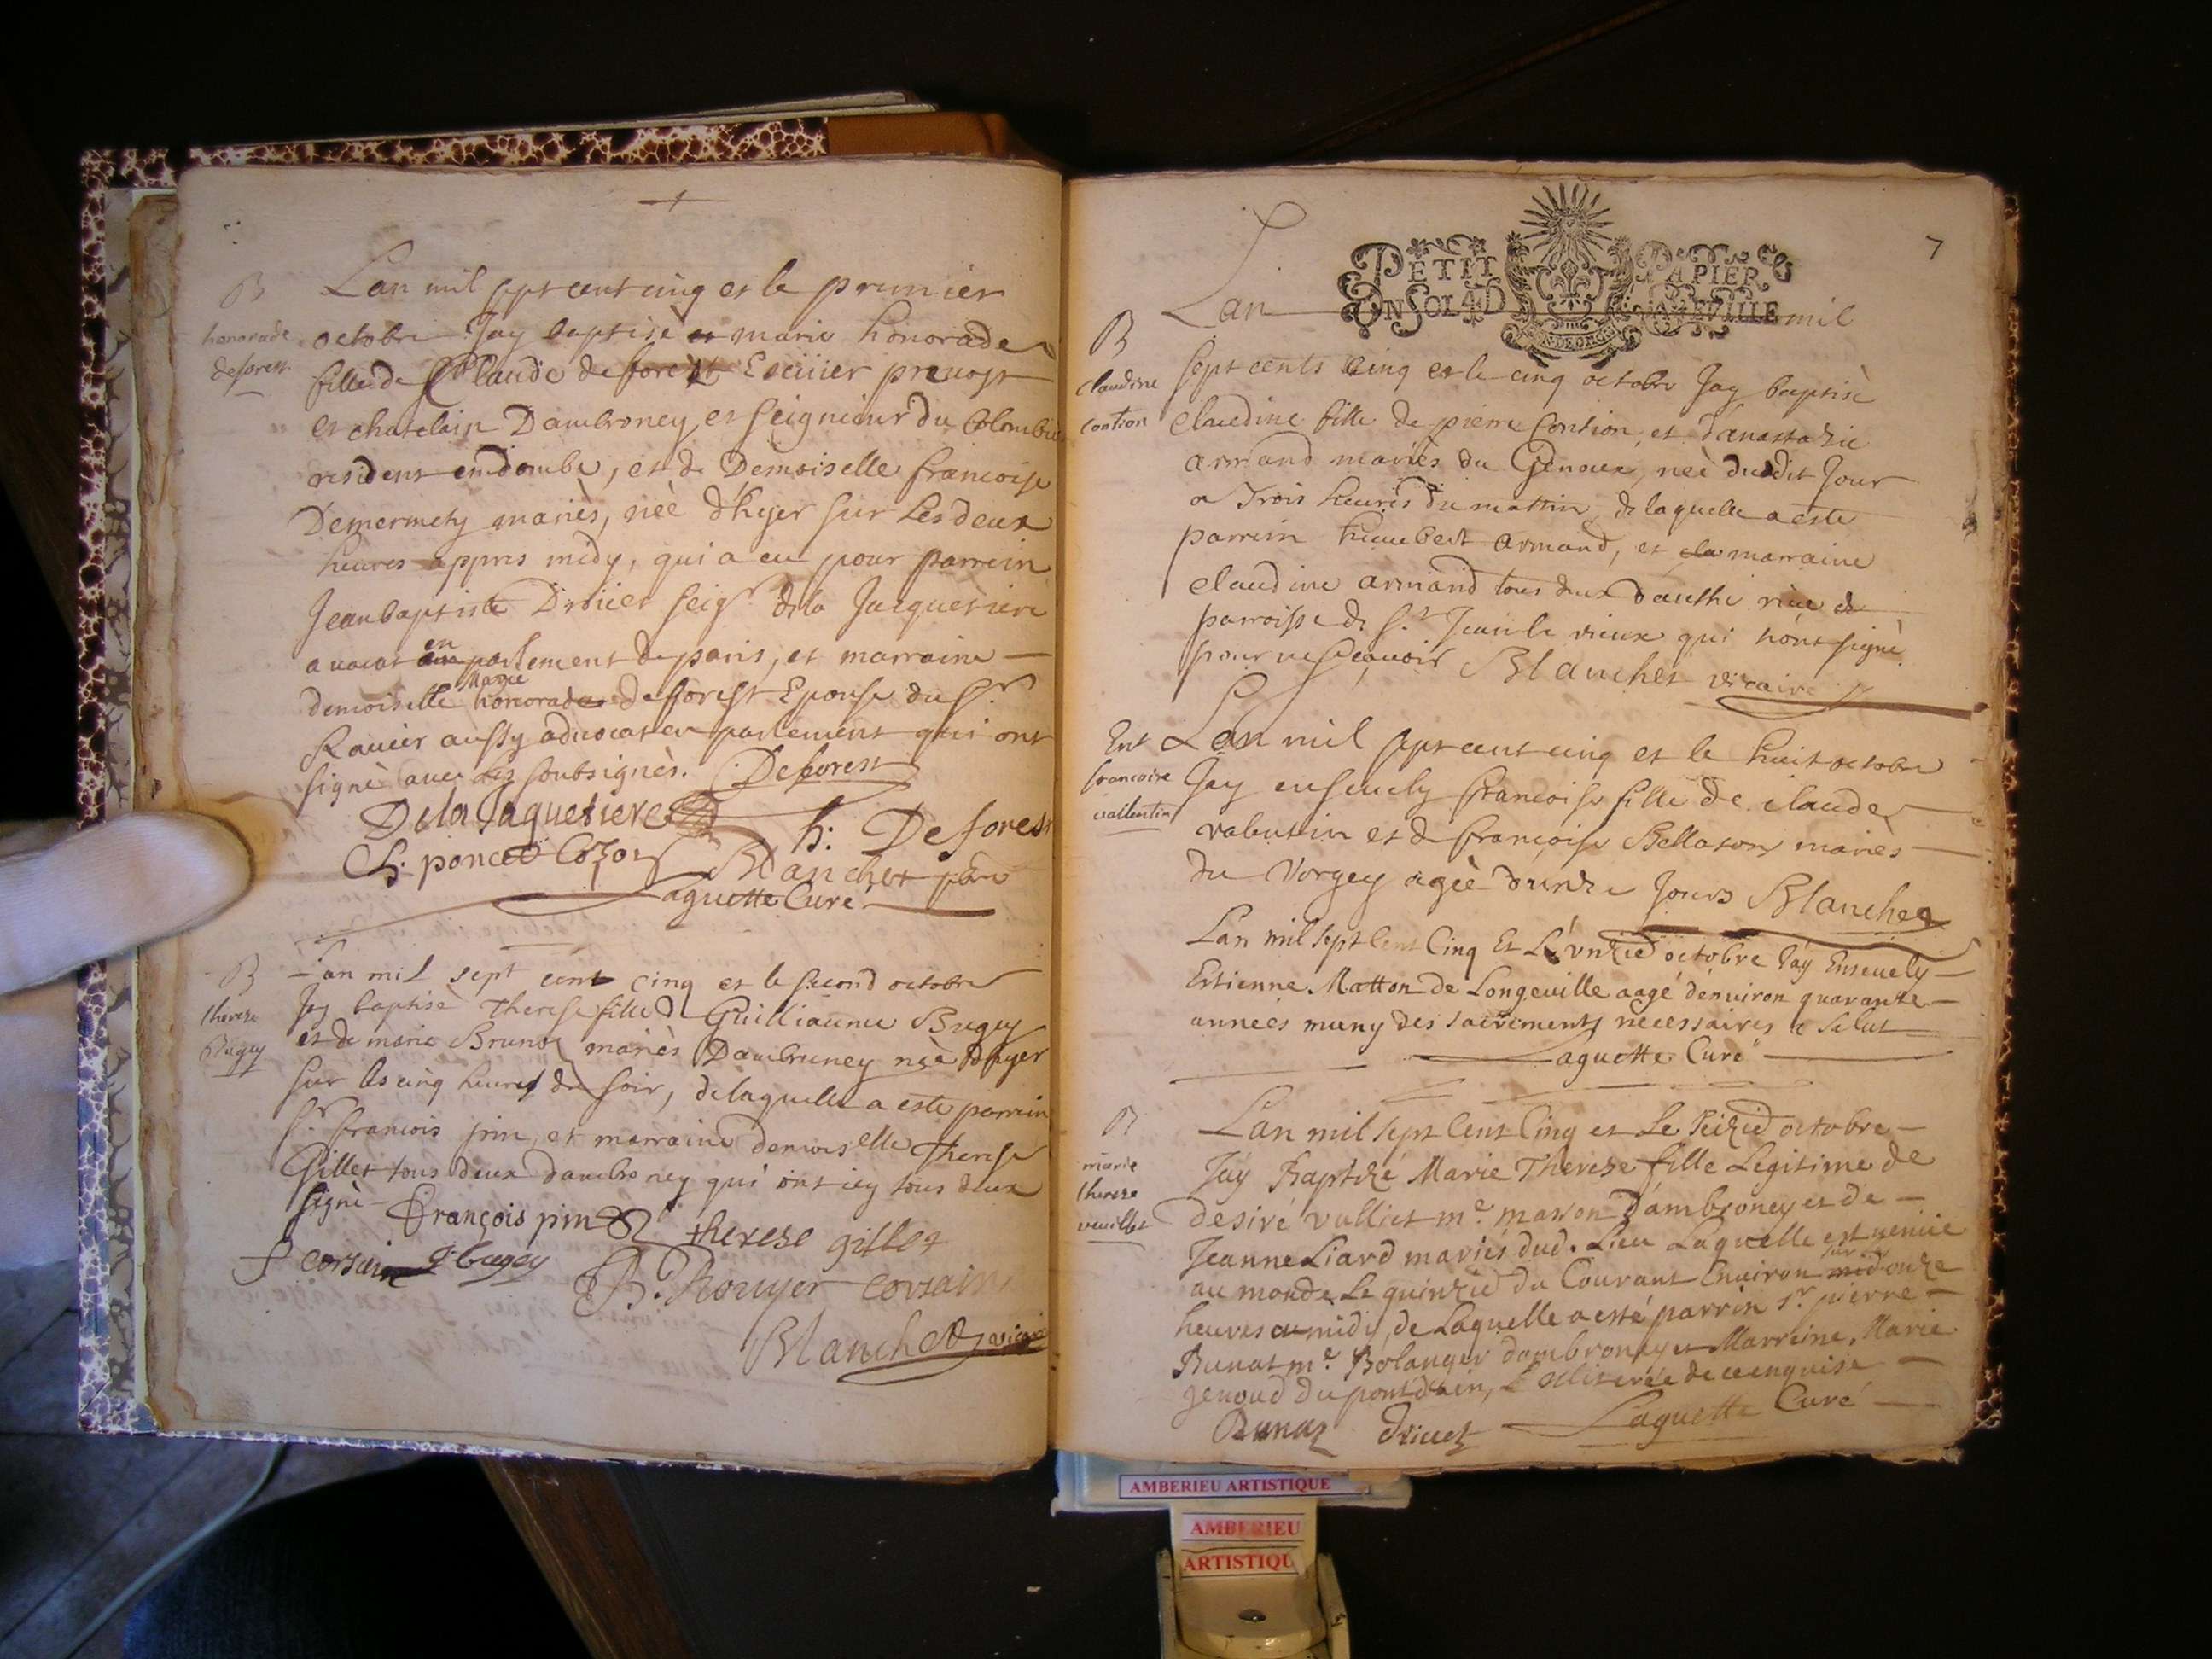 B
honorade
deforest
Lan mil sept cent cinq et le premier
octobre Jay baptisé marie honorade
fille de Sr Claude deforest Ecuiier prevost
et chatelain Dambroney, et seigneur du Colombie
resident endombe, et de Demoiselle francoise
Demermety mariès, néè d'hyer sur Les deux
heures appres midy, qui a eu pour parrein
Jeanbaptiste Drouet seigr. dela Jacquetiere
avocat en parlement de paris, et marraine
demoiselle Marie honorade deforest Epouse du Sr.
Ravier aussy advocat en parlement qui ont
signè avec Les soubsignès. Deforest
Delajaquetiere
h: Deforest
poncet Cozon Blanchet
Laguette Curé
B
therese
Bugey
Lan mil sept cent cinq et le second octobre
Jey baptisè Therese fille de Guilliaume Bugey
et de marie Brunet mariès Dambruney néè Dhyer
sur les cinq heures du soir, delaquelle a este parrein
Sr. francois prin, et marraine demoiselle Therese
Gillet tous deux dambroney qui ont icy tous deux
signè François pin therese gillet
corsain g. bugey
B. Rouyer corsain
Blanchet vicaire
7
PETIT PAPIER
UN SOL 4 D
Lan mil
B
claudine
contion
sept cents cinq et le cinq octobre Jay baptisè
claudine fille de pierre Contion, et d'anastazie
armand mariès du Genoux, neè dudit Jour
a Trois heures du mattin, de laquelle a este
parrein humbert armand, et marraine
claudine armand tous deux dauthe rive
parroisse de St Jean le vieux qui n'ont signè
pour ne scavoir Blanchet vicaire
Ent
francoise
vallentin
Lan mil sept cent cinq et le huit octobre
Jay ensevely francoise fille de claude
valentin et de françoise Bellaton mariès
du Vorgey ageè dunze Jours Blanchet
Lan mil sept Cent Cinq Et L'unzie octobre J'ay Ensevely
Estienne Matton de Longeville aagé d'environ quarante
années muny des sacrements necessaires a salut
Laguette Curé
B
marie
therese
veuillet
L'an mil sept Cent Cinq et Le seizie octobre
J'ay Baptizé Marie Therese fille Legitime de
desiré vulliet me. masson d'ambroney et de
Jeanne Liard mariés dud. Lieu Laquelle est venüe
au monde Le quinzie du Courant Environ sur les onze
heures a midy, de Laquelle a esté parrin sr. pierre
Bunat me. Bolanger dambroney et Marreine Marie
genoud du pont dain, Illiterée de ce enquise
Bunaz Drivet Laguette Curé
AMBERIEU ARTISTIQUE
AMBERIEU
ARTISTIQU